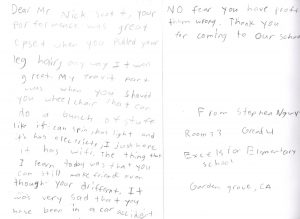 Dear Mr Nick scott, your
performance was great
epset when you pulled your
leg hair, any way I twas
great. My favorit part
was when you should
you wheel chair that can
do a bunch of stuffs
like it can spin, has light and
its has electricite, I just hope
it has wifi. The thing that
I learn today was that you
can still make friend even
though your diffrent. It
was very sad that you
have been in a car accident
NO fear you have prove
them wrong. Thank you
for coming to our school
From Stephen
Room 33 Grade 4
Excelsior Elementary
school
Garden grove, CA